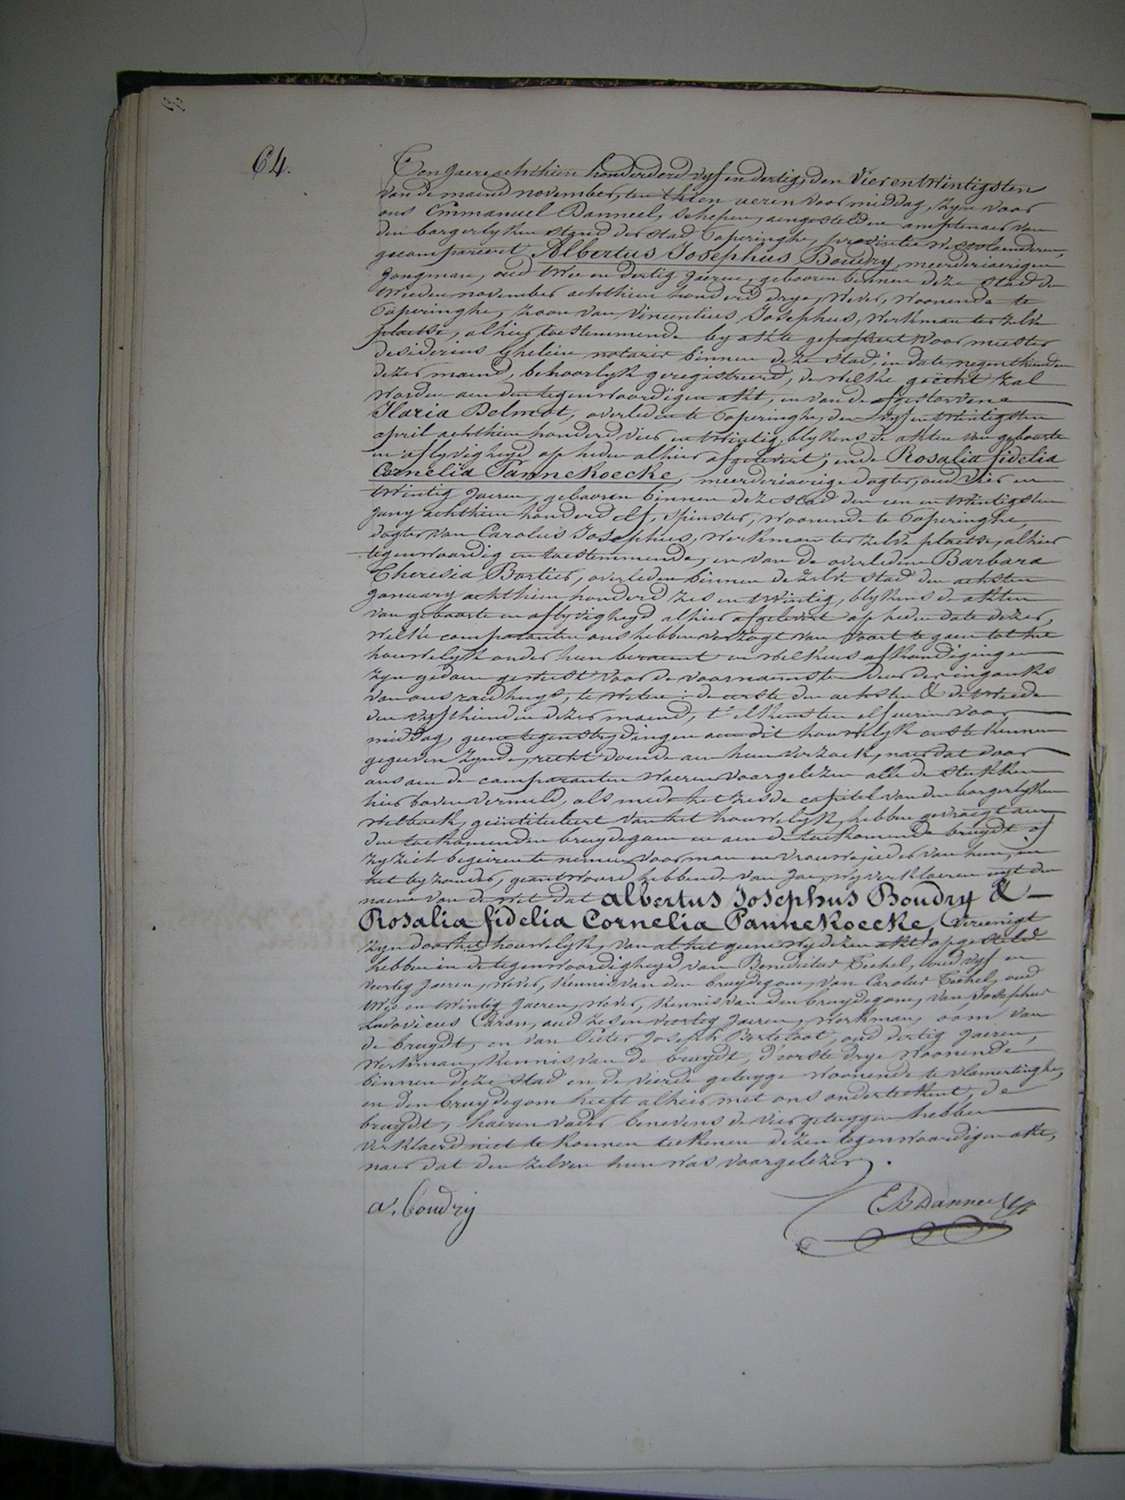 64.
Ten jaere achthien honderd vyf en dertig, den Vier en twintigsten
van de maend november, ten thien ueren voormiddag, zyn voor
ons Emmanuel Danneel, schepen, aengestelden amptenaer van
den borgerlyken stand der stad Poperinghe, provintie Westvlaenderen,
gecompareert Albertus Josephus Boudry, meerderjaerigen
jongman, oud twee en dertig jaeren, gebooren binnen deze stad den
tweeden november achthien honderd drye, wever, woonende te
Poperinghe, zoon van Vincentius Josephus, werkman ter zelve
plaetse, alhier toestemmende by akte gepasseert voor meester
desiderius Ghelein notaris binnen deze stad, in date negenthienden
dezer maend, behoorlyk geregistreerd, de welke gehecht zal
worden aen den tegenwoordigen akt, en van de afgestorvene
Maria Delmot, overleden te Poperinghe, den vyf en twintigsten
april achthien honderd vier en twintig, blykens de akten van geboorte
en aflyvigheyd op heden alhier afgelevert; ende Rosalia fidelia
Cornelia Pannekoecke, meerderjaerige dogter, oud vier en
twintig jaeren, gebooren binnen deze stad den een en twintigsten
juny achthien honderd elf, spinster, woonende te Poperinghe,
dogter van Carolus Josephus, werkman ter zelve plaetse, alhier
tegenwoordig en toestemmende, en van de overledene Barbara
Theresia Bortier, overleden binnen de zelve stad den achsten
january achthien honderd zes en twintig, blykens de akten
van geboorte en aflyvigheyd alhier afgelevert op heden date dezer,
welke comparanten ons hebben verzogt van voort te gaen tot het
houwelyk onder hun beraemt en welkers afkondigingen
zyn gedaen geweest voor de voornaemste deur der ingank
van ons raedhuys, te weten: de eerste den achsten & de tweede
den vyfthienden dezer maend, t'elkensten elf ueren voor
middag, geene tegenstrydingen aen dit houwelyk ons te kennen
gegeven zynde, recht doende aen hun verzoek, naer dat door
ons aen de comparanten waeren voorgelezen alle de stukken
hier boven vermeld, als mede het zesde capitel van den borgerlyken
wetboek, geïntituleert van het houwelyk, hebben gevraegt aen
den toekomenden bruydegom en aen de toekomende bruydt of
zy zich begeiren te nemen voor man en vrouw, ieder van hun, in
het byzonder, geantwoord hebbende van Jae, wy verklaeren uyt den
naeme van de wet dat albertus Josephus Boudry &
Rosalia fidelia Cornelia Pannekoecke, Vereenigt
zyn door het houwelyk, van al het geene wy dezen akt opgesteld
hebben in de tegenwoordigheyd van Benedictus Techel, oud vyf en
veertig jaeren, wever, kennis van den bruydegom, van Carolus Techel, oud
twee en twintig jaeren, wever, kennis van den bruydegom, van Josephus
Ludovicus Caron, oud zes en veertig jaeren, werkman, oom van
de bruydt, en van Pieter Joseph Berteloot, oud dertig jaeren,
werkman, kennis van de bruydt, d'eerste drye woonende
binnen deze stad en de vierde getuyge woonende te vlamertinghe,
en den bruydegom heeft alhier met ons onderteekent, de
bruydt, haeren vader benevens de vier getuygen hebben
verklaerd niet te konnen teekenen dezen tegenwoordigen akt,
naer dat den zelven hun was voorgelezen.
a. boudry
E B Danneel